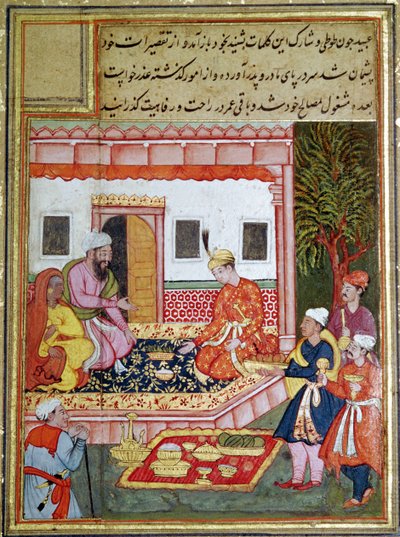 عبید چون طوطی و شارک این کلمات بشنید بخود باز آمد و از تقصیرات خود
پشیمان شد سر در پای مادر و پدر آورد و از امور کذشته عذر خواست
بعده مشغول مصالح خود شد و باقی عمر در راحت و رفاهیت کذرانید